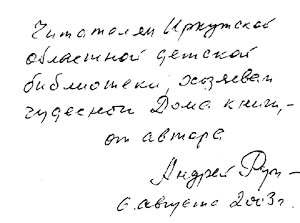 Читателям Иркутской
областной детской
библиотеки, хозяевам
чудесной Дома книги, –
от автора
Андрей
6 августа 2003 г.